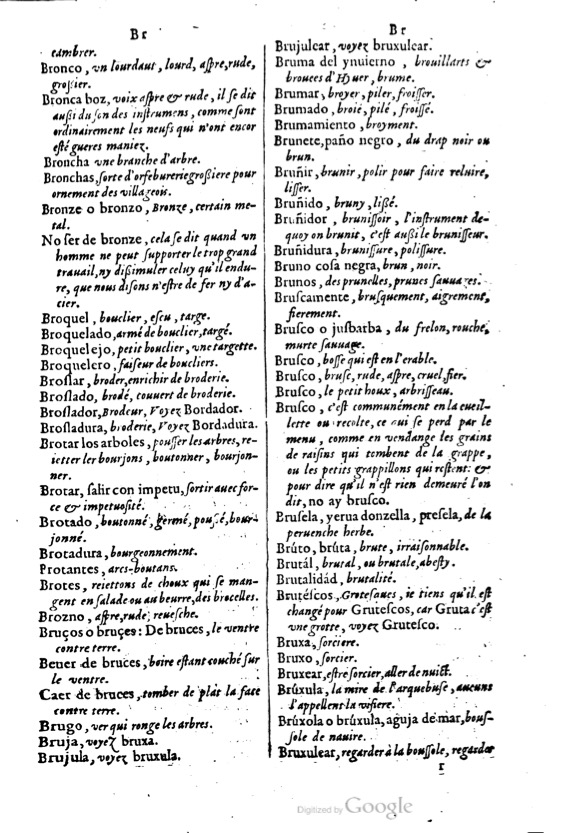 Br
cambrer.
Bronco, vn lourdaut, lourd, aspre, rude,
grossier.
Bronca boz, voix aspre & rude, il se dit
aussi du son des instrumens, comme sont
ordinairement les neufs qui n'ont encor
esté gueres maniez.
Broncha vne branche d'arbre.
Bronchas, sorte d'orfeburerie grossiere pour
ornement des villageois.
Bronze o bronzo, Bronze, certain me-
tal.
No ser de bronze, cela se dit quand vn
homme ne peut supporter le trop grand
trauail, ny dissimuler celuy qu'il endu-
re, que nous disons n'estre de fer ny d'a-
cier.
Broquel, bouclier, escu, targe.
Broquelado, armé de bouclier, targé.
Broquelejo, petit bouclier, vne targette.
Broquelero, faiseur de boucliers.
Broslar, broder, enrichir de broderie.
Broslado, brodé, couuert de broderie.
Broslador, Brodeur, Voyez Bordador.
Brosladura, broderie, Voyez Bordadura.
Brotar los arboles, pousser les arbres, re-
ietter ler bourjons, boutonner, bourjon-
ner.
Brotar, salir con impetu, sortir auec for-
ce & impetuosité.
Brotado, boutonné, germé, poussé, bour-
jonné.
Brotadura, bourgeonnement.
Protantes, arcs-boutans.
Brotes, reiettons de choux qui se man-
gent en salade ou au beurre, des brocelles.
Brozno, aspre, rude, reuesche.
Bruços o bruçes: De bruces, le ventre
contre terre.
Beuer de bruces, boire estant couché sur
le ventre.
Caer de bruces, tomber de plat la face
contre terre.
Brugo, ver qui ronge les arbres.
Bruja, voyez bruxa.
Brujula, voyez bruxula.
Br
Brujulear, voyez bruxulear.
Bruma del ynuierno, brouillarts &
brouces d'Hyuer, brume.
Brumar, broyer, piler, froisser.
Brumado, broié, pilé, froissé.
Brumamiento, broyment.
Brunete, paño negro, du drap noir ou
brun.
Bruñir, brunir, polir pour faire reluire,
lisser.
Bruñido, bruny, lissé.
Bruñidor, brunissoir, l'instrument de-
quoy on brunit, c'est aussi le brunisseur.
Bruñidura, brunissure, polissure.
Bruno cosa negra, brun, noir.
Brunos, des prunelles, prunes sauuages.
Bruscamente, brusquement, aigrement,
fierement.
Brusco o jusbarba, du frelon, rouche,
murte sauuage.
Brusco, bosse qui est en l'erable.
Brusco, brusc, rude, aspre, cruel, fier.
Brusco, le petit houx, arbrisseau.
Brusco, c'est communément en la cueil-
lette ou recolte, ce qui se perd par le
menu, comme en vendange les grains
de raisins qui tombent de la grappe,
ou les petits grappillons qui restent: &
pour dire qu'il n'est rien demeuré l'on
dit, no ay brusco.
Brusela, yerua donzella, presela, de la
peruenche herbe.
Brúto, brúta, brute, irraisonnable.
Brutál, brutal, ou brutale, abesty.
Brutalidád, brutalité.
Brutéscos, Grotesques, ie tiens qu'il est
changé pour Grutescos, car Gruta c'est
vne grotte, voyez Grutesco.
Bruxa, sorciere.
Bruxo, sorcier.
Bruxear, estre sorcier, aller de nuict.
Brúxula, la mire de l'arquebuse, aucuns
l'appellent la visiere.
Brúxola o brúxula, aguja de mar, bous-
sole de nauire.
Bruxulear, regarder à la boussole, regarder
r
Digitized by Google